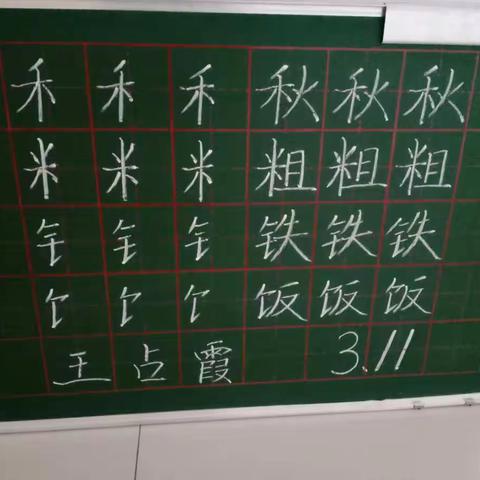 禾 禾 禾 秋 秋 秋
米 米 米 粗 粗 粗
钅 钅 钅 铁 铁 铁
饣 饣 饣 饭 饭 饭
王占霞 3.11